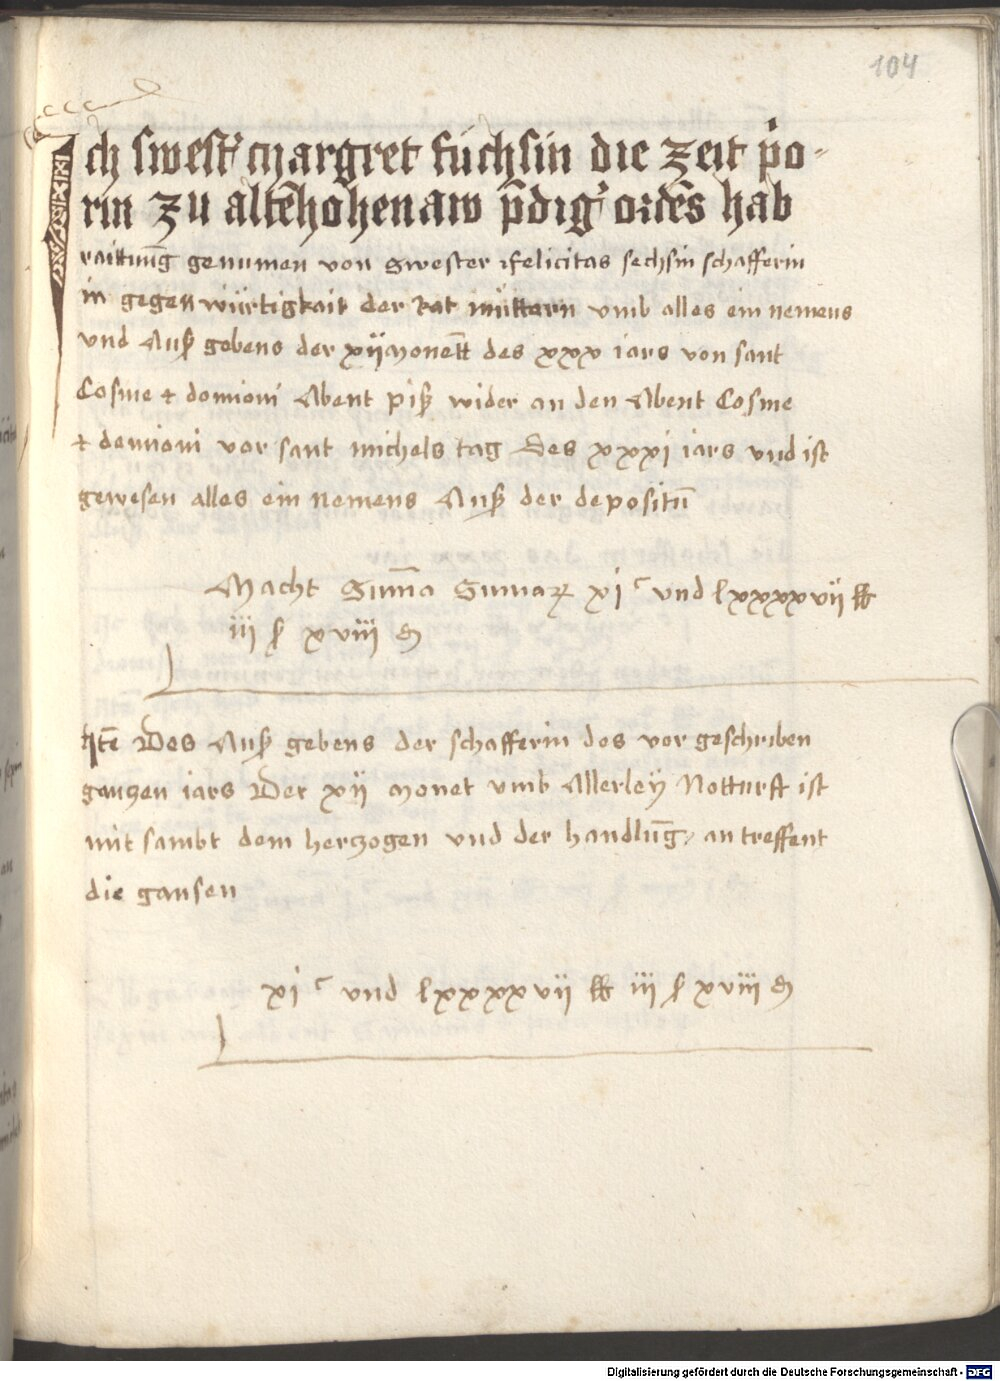 104
Ich swest' margret füchsin die zeit p'o-
rin zu altēhohenaw p̄dig' ordēs hab
raittūng genumen von swester felicitas sechsin schafferin
in gegenwürtigkait der Rat müttern vmb alles ein nemens
vnd Ausz gebens der xij monett des xxx iars von sant
Cosme & domioni Abent pisz wider an den Abent Cosme
& demioni vor sant michels tag Des xxxi iars vnd ist
gewesen alles ein nemens Ausz der depositū
Macht Sum̄a Sumaꝝ xi c vnd lxxxxvij ℔
iij ß xviij ₰
Itē Des Ausz gebens der schafferin des vor geschriben
ganczen iars Der xij monet vmb Allerley Notturft ist
mit sambt dem herczogen vnd der handlūg / an treffent
die gansen
xi c vnd lxxxxvij ℔ iij ß xviij ₰
Digitalisierung gefördert durch die Deutsche Forschungsgemeinschaft - DFG